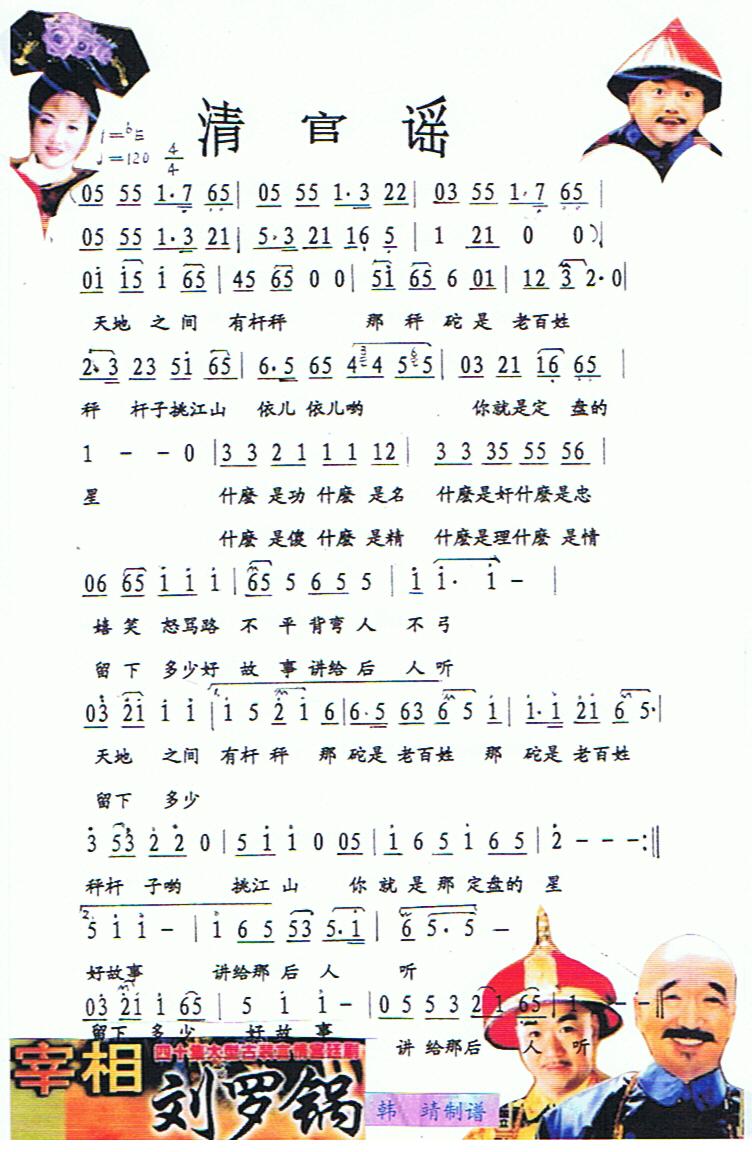 清官谣
1=♭E
♩=120 4/4
(05 55 1·7 65| 05 55 1·3 22| 03 55 1·7 65|
05 55 1·3 21| 5·3 21 16 5 | 1 21 0 0)|
01 15 1 65| 45 65 0 0 | 51 65 6 01 | 12 3 2·0|
天地 之 间 有杆秤 那 秤 砣 是 老百姓
2·3 23 51 65| 6·5 65 4 4 5 5| 03 21 16 65 |
秤 杆子挑江山 依儿 依儿哟 你就是定 盘的
1 - - 0 |3 3 2 1 1 1 12| 3 3 35 55 56 |
星 什麽 是功 什麽 是名 什麽是奸什麽是忠
什麽 是傻 什麽 是精 什麽是理什麽 是情
06 65 1 1 1 | 65 5 6 5 5 | 1 1· 1 - |
嬉 笑 怒骂路 不 平 背弯 人 不 弓
留 下 多少好 故 事 讲给 后 人 听
03 21 1 1 |1. 1 5 2 1 6|6·5 63 6 5 1 | 1·1 21 6 5·|
天地 之间 有杆 秤 那 砣是 老百姓 那 砣是 老百姓
留下 多少
3 53 2 2 0 | 5 1 1 0 05 | 1 6 5 1 6 5 | 2 - - -:‖
秤杆 子哟 挑江 山 你 就 是 那 定盘的 星
2. 5 1 1 - | 1 6 5 53 5·1 | 6 5· 5 —
好故事 讲给那 后 人 听
03 21 1 65 | 5 1 1 - |0 5 5 3 2 1 65| 1 - - ‖
留下 多 少 好 故 事 讲 给那后 人 听
四十集大型古装言情宫廷剧
宰相刘罗锅
韩 靖制谱